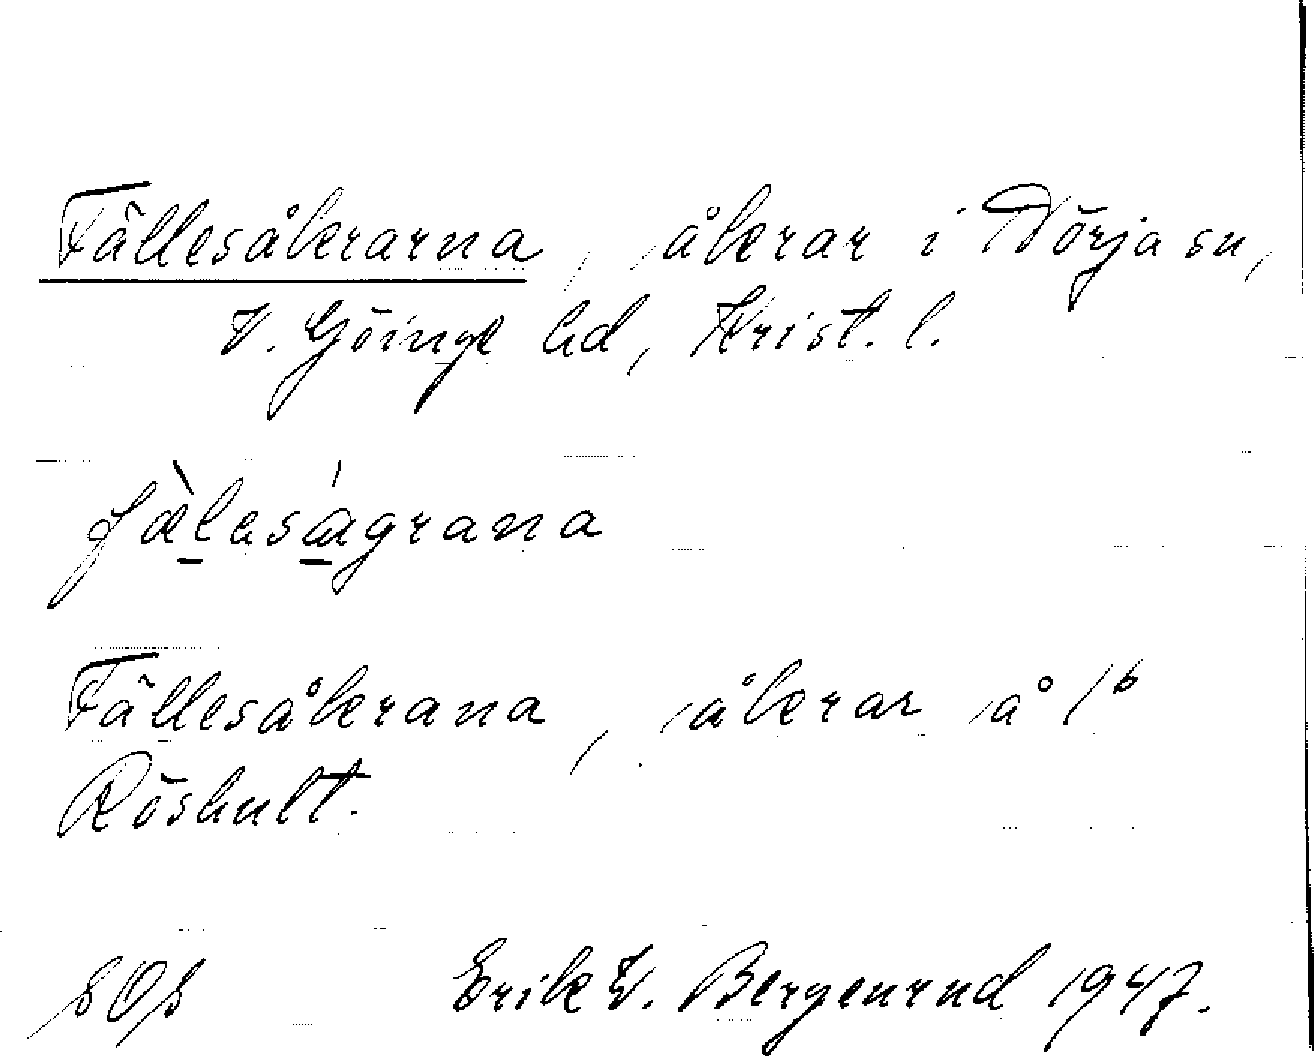 Fällesåkrarna, åkrar i Nörja sn,
V. Göinge hd, Krist. l.
fæ̀leságrana
Fällesåkrana, åkrar å 1b
Röshult.
SOS Erik W. Bergenrud 1947.